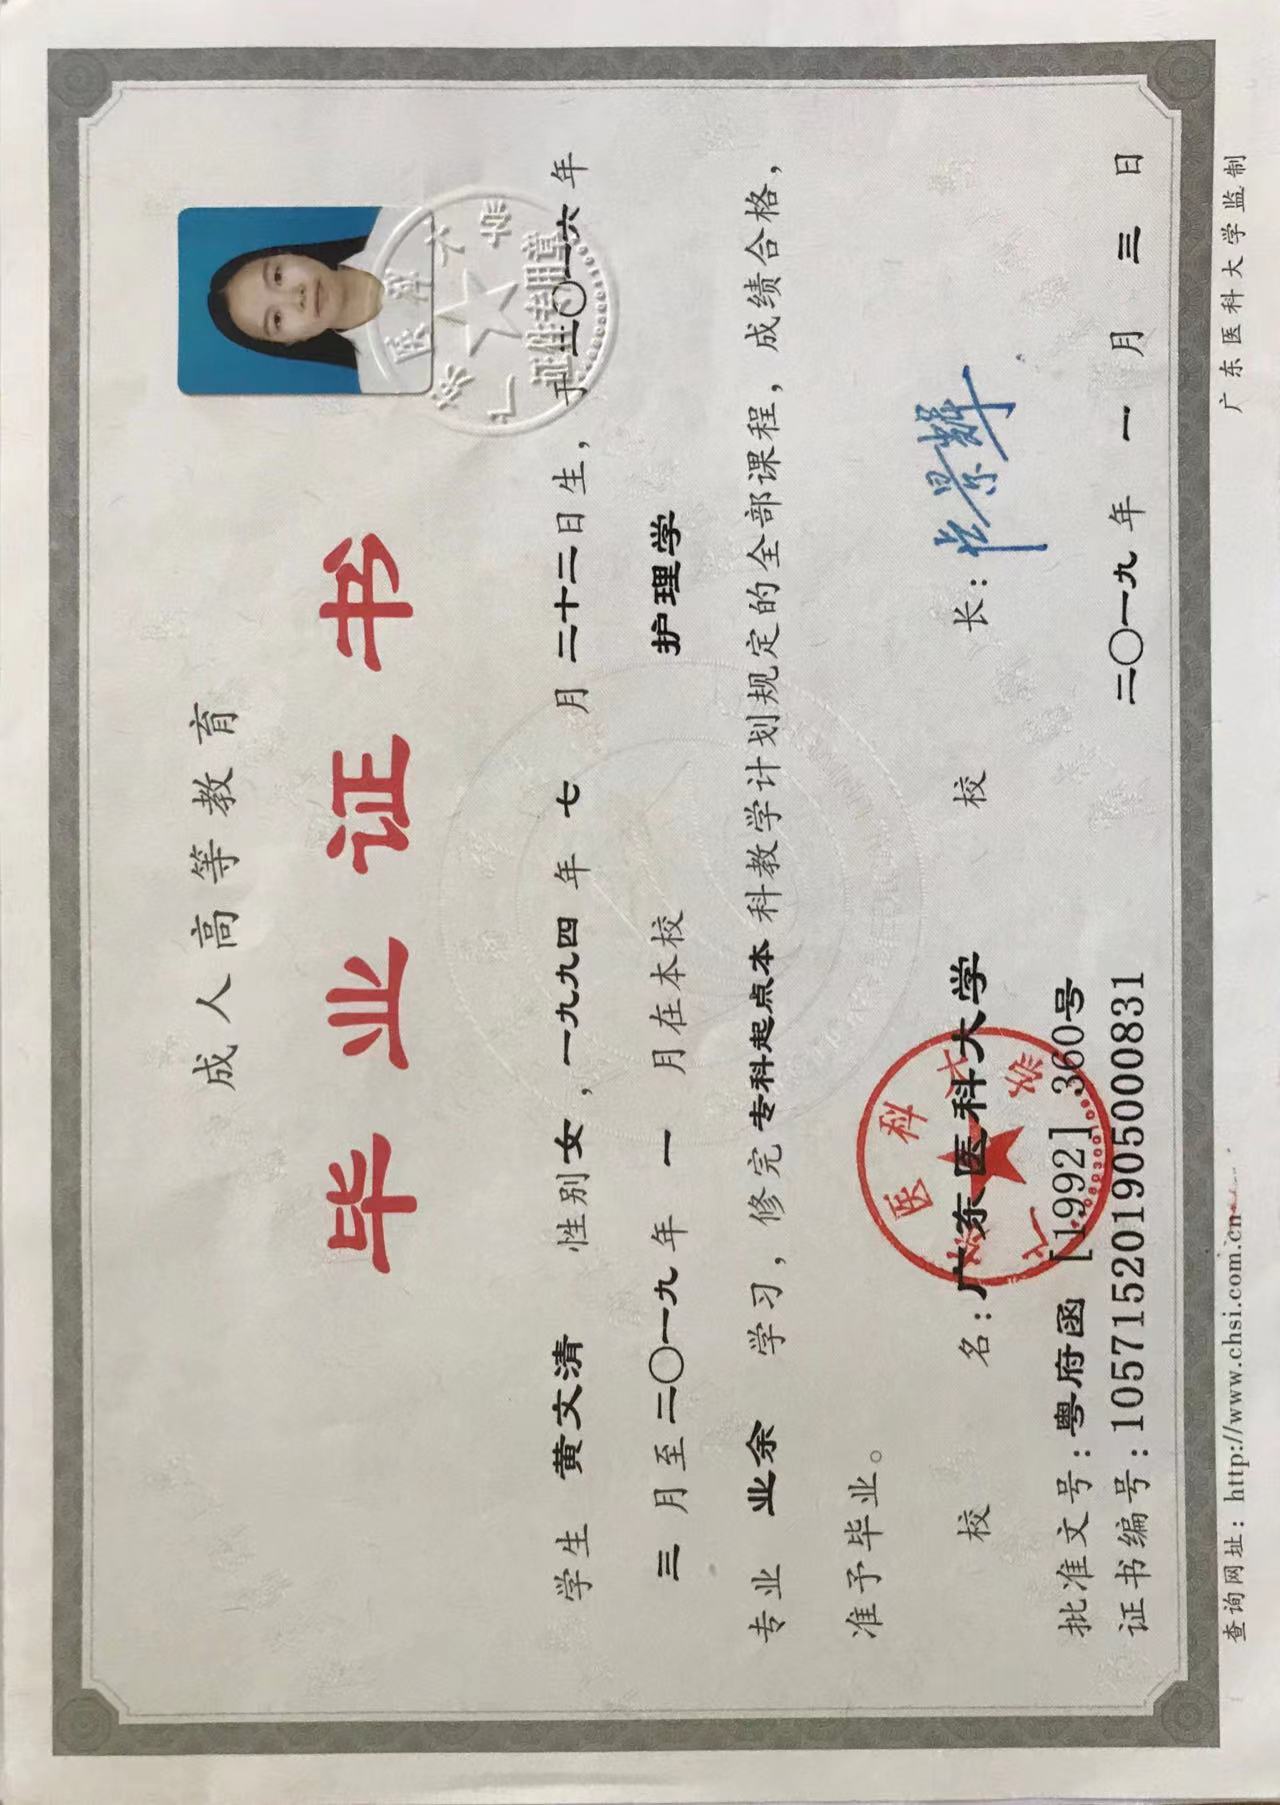 成人高等教育
毕业证书
学生 黄文清 性别女，一九九四年 七 月二十二日生，于二〇一六年
三 月至二〇一九年 一 月在本校 护理学
专业 业余 学习，修完专科起点本科教学计划规定的全部课程，成绩合格，
准予毕业。
校 名：广东医科大学 校 长：
批准文号：粤府函 [1992] 360号
证书编号：105715201905000831 二〇一九年 一 月 三 日
查询网址：http://www.chsi.com.cn 广东医科大学监制
证件专用章